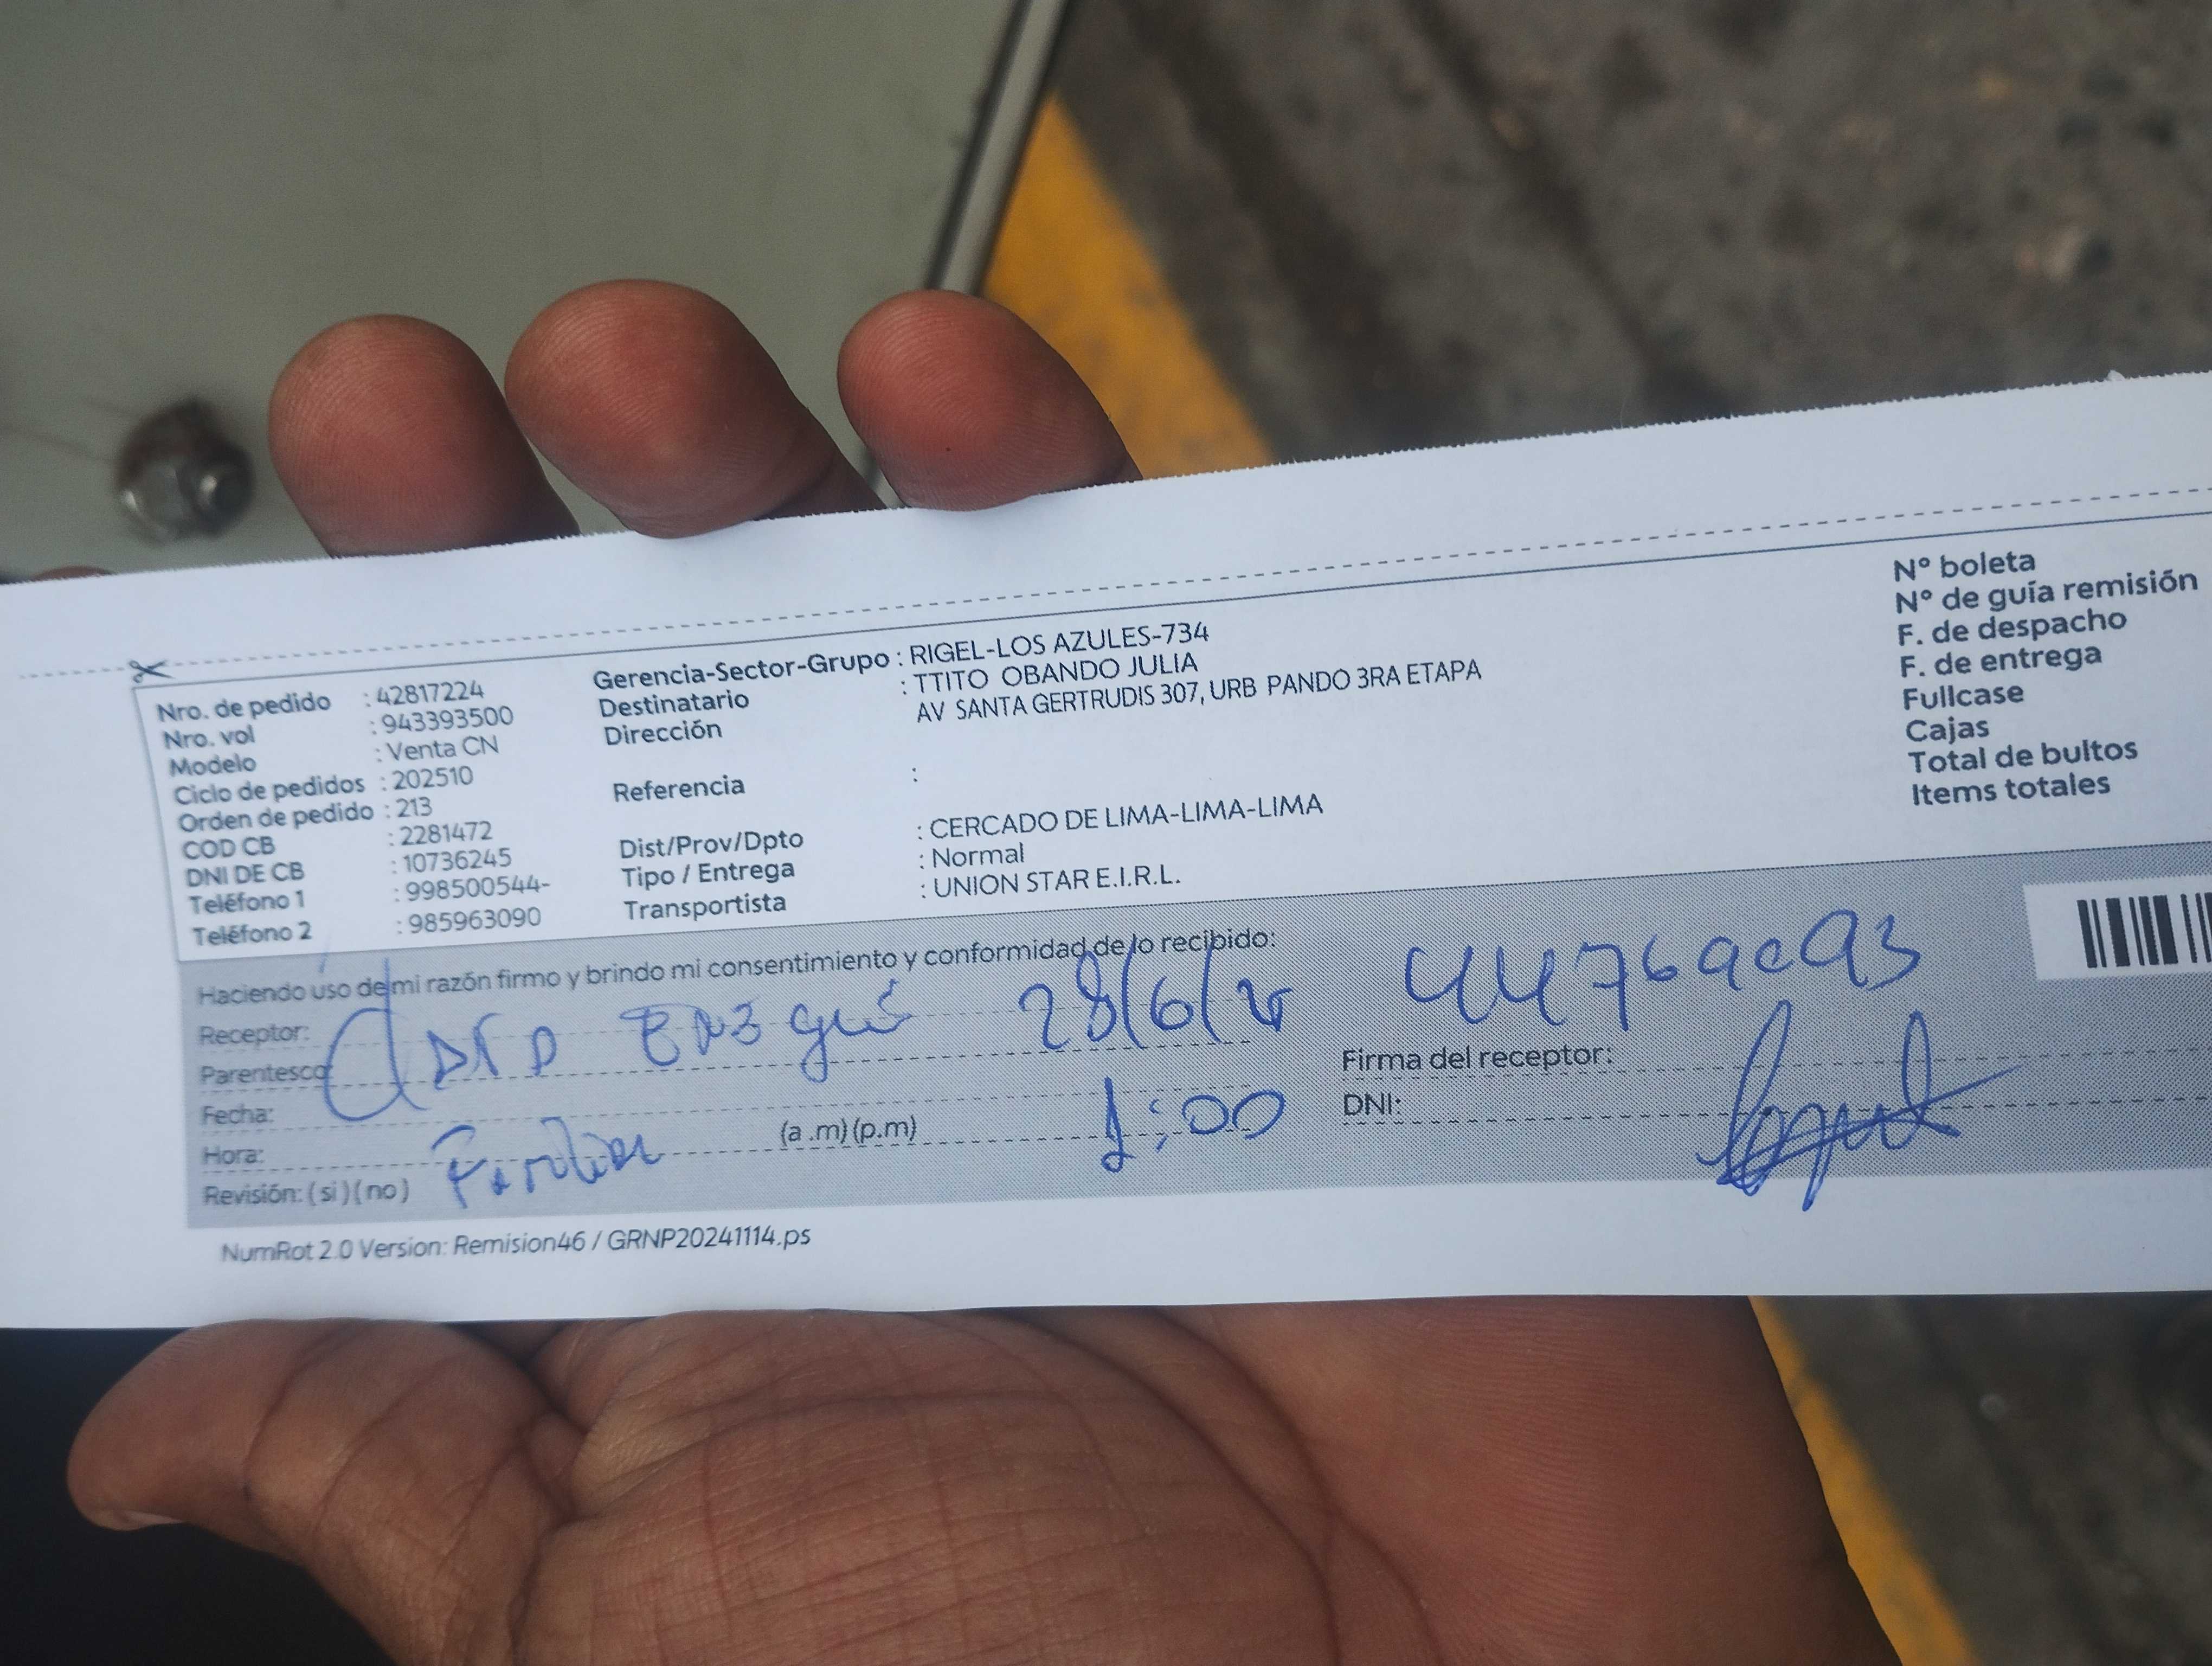 Nro. de pedido : 42817224
Nro. vol : 943393500
Modelo : Venta CN
Ciclo de pedidos : 202510
Orden de pedido : 213
COD CB : 2281472
DNI DE CB : 10736245
Teléfono 1 : 998500544-
Teléfono 2 : 985963090
Gerencia-Sector-Grupo : RIGEL-LOS AZULES-734
Destinatario : TTITO OBANDO JULIA
Dirección AV SANTA GERTRUDIS 307, URB PANDO 3RA ETAPA
Referencia :
Dist/Prov/Dpto : CERCADO DE LIMA-LIMA-LIMA
Tipo / Entrega : Normal
Transportista : UNION STAR E.I.R.L.
N° boleta
N° de guía remisión
F. de despacho
F. de entrega
Fullcase
Cajas
Total de bultos
Items totales
Haciendo uso de mi razón firmo y brindo mi consentimiento y conformidad de lo recibido:
Receptor:
Parentesco:
Fecha: 28/6/
Hora: (a .m) (p.m) 1:00
Revisión: (si) (no)
Firma del receptor:
DNI:
NumRot 2.0 Version: Remision46 / GRNP20241114.ps